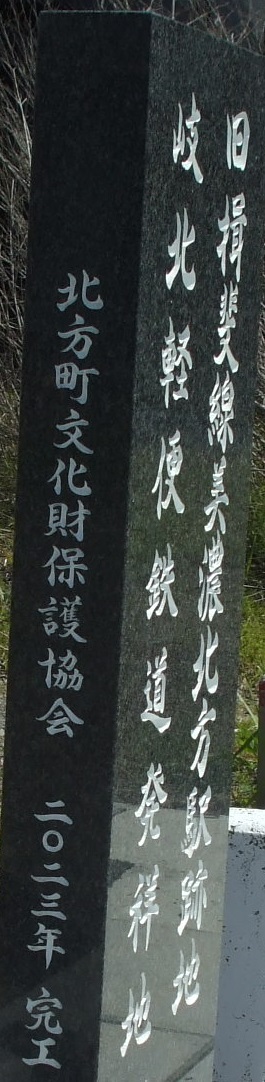 旧揖斐線美濃北方駅跡地
岐北軽便鉄道発祥地
北方町文化財保護協会 二〇二三年 完工